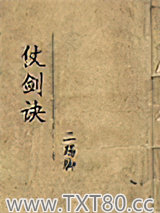 仗剑诀
二踢脚
www.TXT80.cc